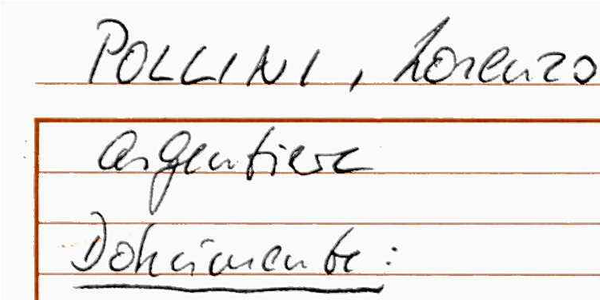 POLLINI, Lorenzo
Argentiere
Dokumente: